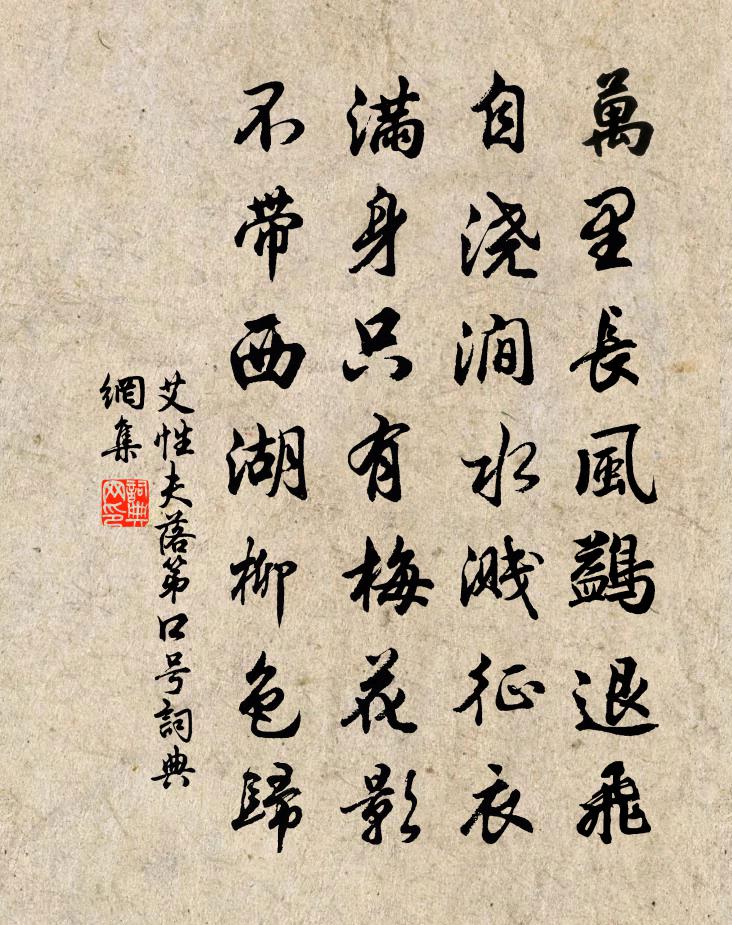 萬里長風鷁退飛
自浇澗水溅征衣
滿身只有梅花影
不帶西湖柳色歸
艾性夫落第口号詞典
網集
詞典網印